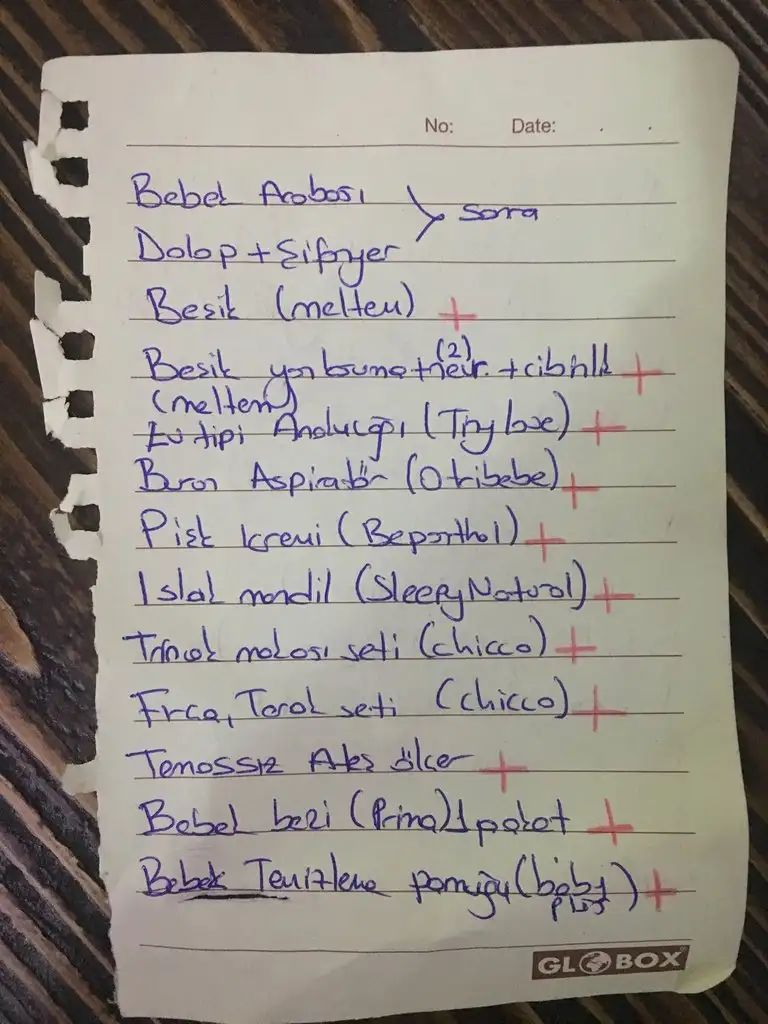 No: Date: . .
Bebek Arabası
sonra
Dolap + Şifonyer
Beşik (meltem) +
(2)
Beşik yan koruma + nevr. + cibinlik +
(meltem)
Ev tipi Anakucağı (Tiny love) +
Burun Aspiratör (Otribebe) +
Pişik kremi (Bepanthol) +
Islak mendil (Sleepy Natural) +
Tırnak makası seti (chicco) +
Fırça, Tarak seti (chicco) +
Temassız Ateş ölçer +
Bebek bezi (Prima) 1 paket +
Bebek Temizleme pamuğu (baby +
plus)
GLOBOX